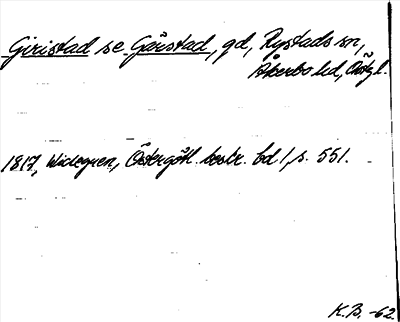 Giristad se Gärstad, gd, Rystads sn,
Åkerbo hd, Östg l.
1817, Widegren, Östergötl. beskr. bd 1, s. 551.
K.B. -62.